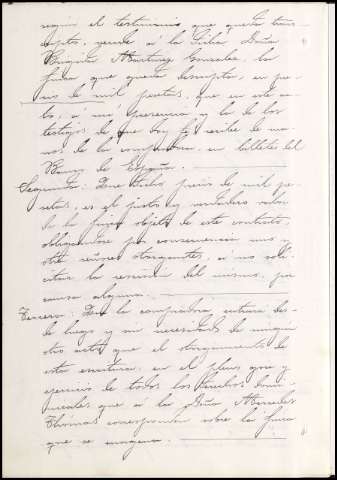 según el testimonio que queda trans-
cripto, vende á la Srta. Doña
Martinez Gonzalez, la
finca que queda descripta, en pre-
cio de mil pesetas, que en este ac-
to, á mi presencia y la de los
testigos de que doy fe recibe de ma-
nos de la compradora, en billetes del
Banco de España.
Segunda: Que dicho precio de mil pe-
setas, es el justo y verdadero valor
de la finca objeto de este contrato,
obligandose por consecuencia uno y
otro señores otorgantes, á no soli-
citar la rescision del mismo, por
causa alguna.
Tercera: Que la compradora entrará des-
de luego y sin necesidad de ningun
otro acto que el otorgamiento de
esta escritura, en el pleno goce y
ejercicio de todos los derechos domi-
nicales que á la Doña Mercedes
Thomas correspondan sobre la finca
que se enagena.